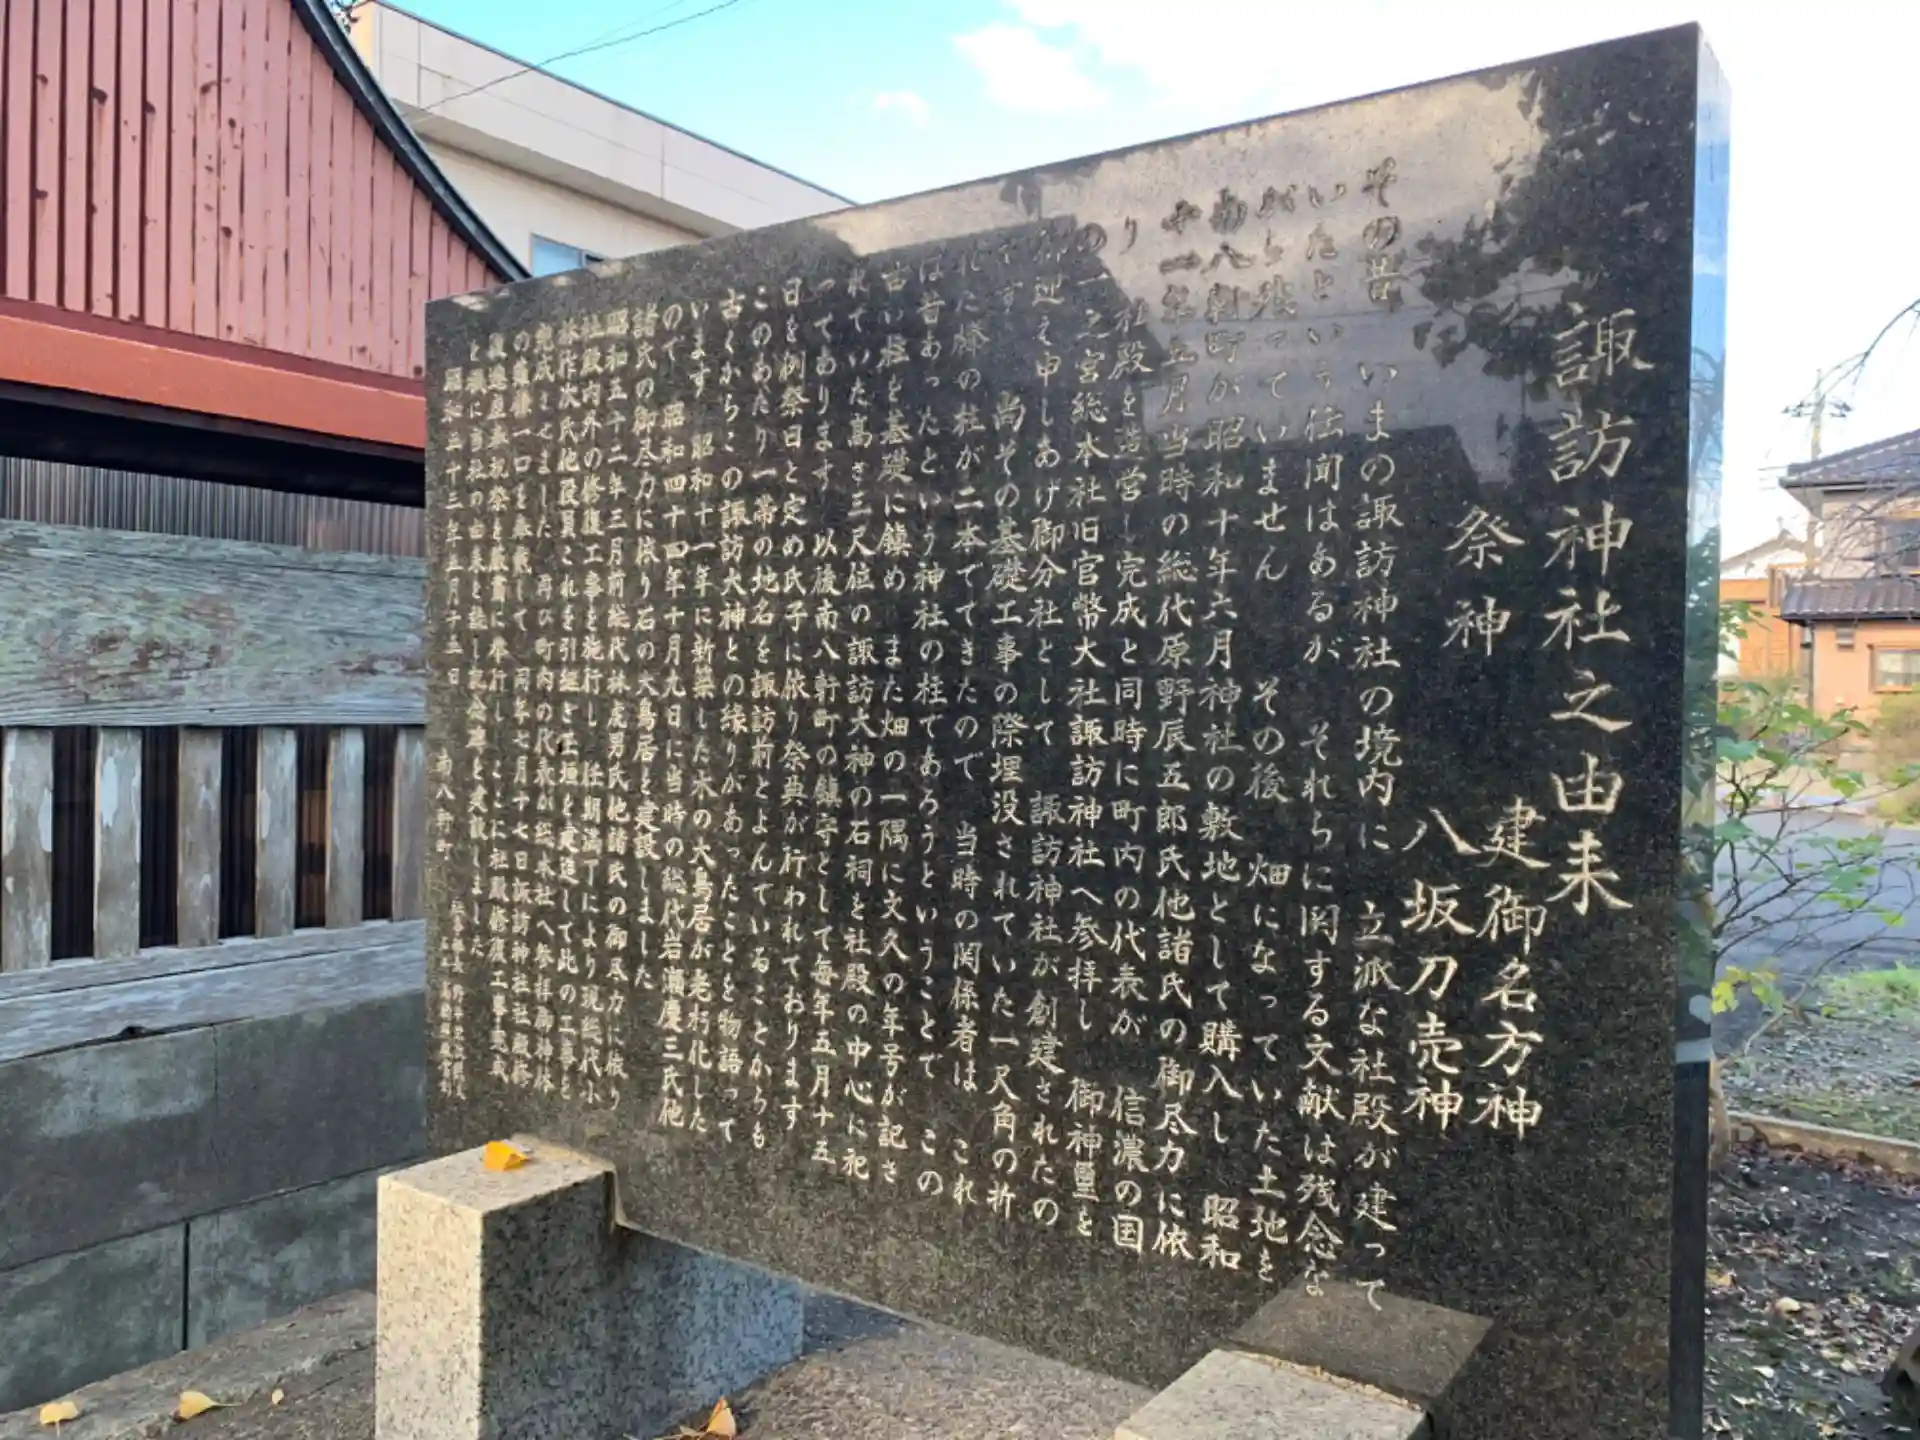 諏訪神社之由来
祭神 建御名方神
八坂刀売神
その昔 いまの諏訪神社の境内に 立派な社殿が建って
いたという伝聞はあるが それらに関する文献は残念な
がら残っていません その後 畑になっていた土地を
南八軒町が昭和十年六月神社の敷地として購入し 昭和
十一年五月当時の総代原野辰五郎氏他諸氏の御尽力に依
り 社殿を造営し完成と同時に町内の代表が 信濃の国
の一之宮総本社旧官幣大社諏訪神社へ参拝し 御神璽を
御迎え申しあげ御分社として 諏訪神社が創建されたの
です 尚その基礎工事の際埋没されていた一尺角の折
れた樣の柱が二本でてきたので 当時の関係者は これ
は昔あったという神社の柱であろうということで この
古い柱を基礎に鎮め また畑の一隅に文久の年号が記さ
れていた高さ三尺位の諏訪大神の石祠を社殿の中心に祀
ってあります 以後南八軒町の鎮守として毎年五月十五
日を例祭日と定め氏子に依り祭典が行われております
このあたり一帯の地名を諏訪前とよんでいることからも
古くからこの諏訪大神との縁りがあったことを物語って
います 昭和十一年に新築した木の大鳥居が老朽化した
ので 昭和四十四年十月九日に当時の総代岩瀬慶三氏他
諸氏の御尽力に依り石の大鳥居を建設しました
昭和五十二年三月前総代林虎男氏他諸氏の御尽力に依り
社殿内外の修復工事を施行し 任期満了により現総代小
林作次氏他役員これを引継ぎ玉垣を建造して此の工事を
完成させました 再び町内の代表が総本社へ参拝御神体
の薙鎌一口を奉戴して 同年七月十七日諏訪神社社殿修
復遷座奉祝祭を厳粛に奉行し ここに社殿修復工事完成
を機に当社の由来を誌し記念碑を建設しました
昭和五十三年五月十五日 南八軒町